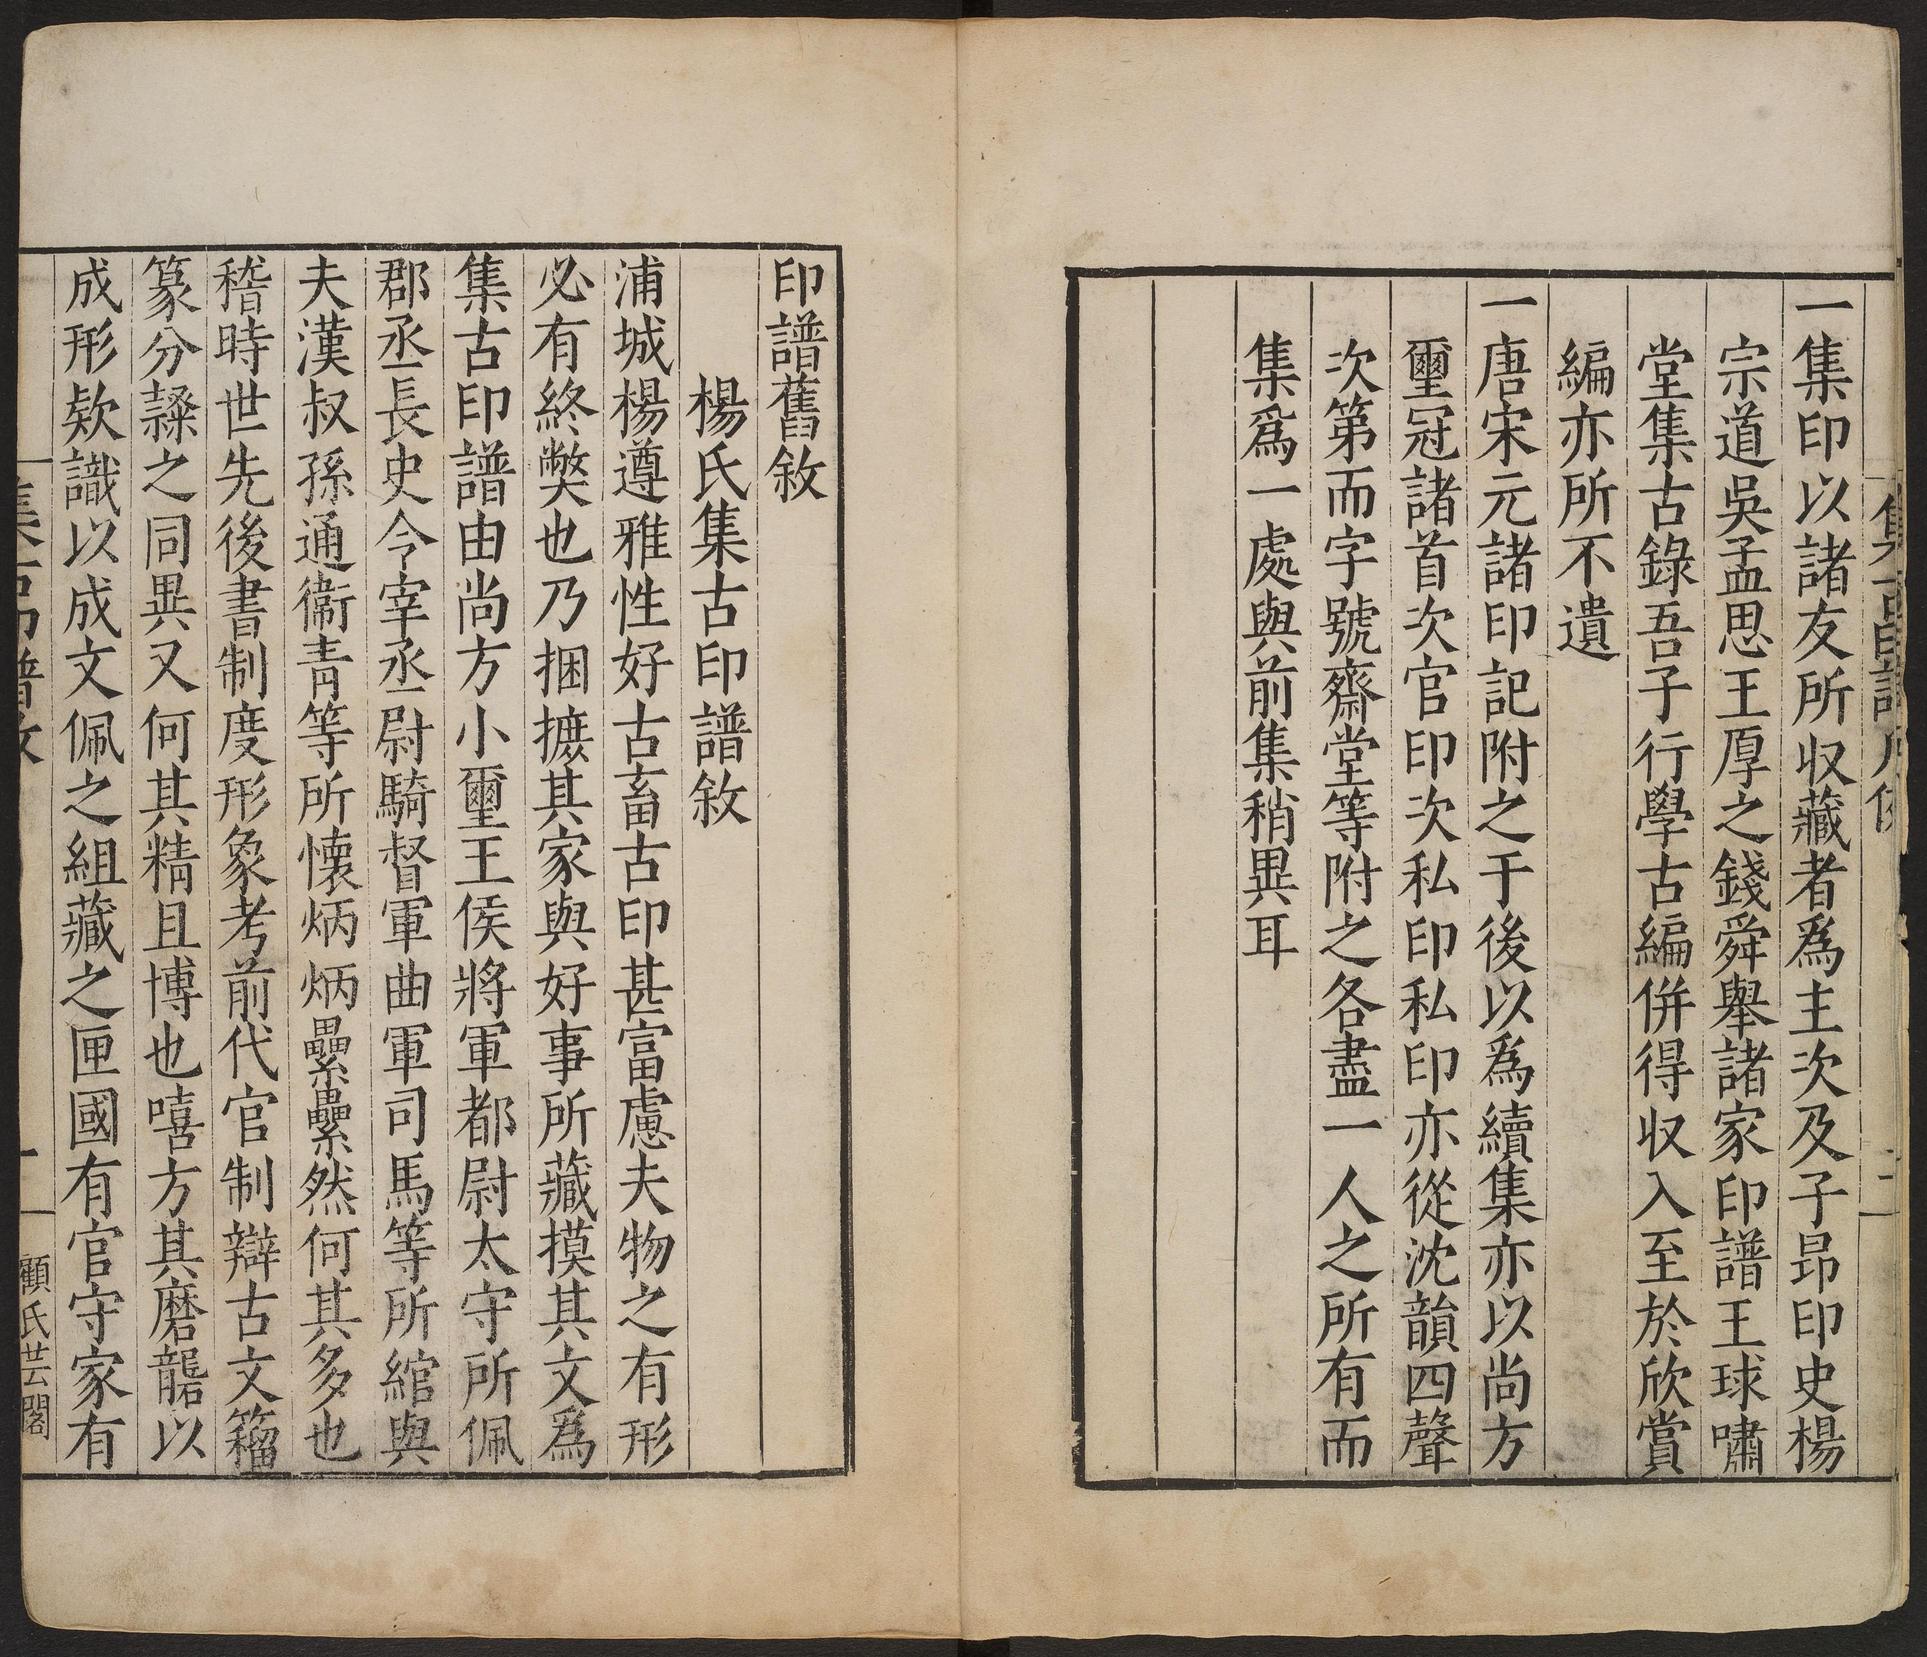 一集印以諸友所収藏者爲主次及子昻印史楊
宗道吳孟思王厚之錢舜舉諸家印譜王球嘯
堂集古錄吾子行學古編併得収入至於欣賞
編亦所不遺
一唐宋元諸印記附之于後以爲續集亦以尚方
璽冠諸首次官印次私印私印亦從沈韻四聲
次第而字號齋堂等附之各盡一人之所有而
集爲一處與前集稍異耳
二
印譜舊敘
楊氏集古印譜敘
浦城楊遵雅性好古畜古印甚富慮夫物之有形
必有終獘也乃捆摭其家與好事所藏摸其文爲
集古印譜由尚方小璽王侯將軍都尉太守所佩
郡丞長史令宰丞尉騎督軍曲軍司馬等所綰與
夫漢叔孫通衞青等所懷炳炳纍纍然何其多也
稽時世先後書制度形象考前代官制辯古文籀
篆分隸之同異又何其精且博也嘻方其磨礲以
成形欵識以成文佩之組藏之匣國有官守家有
集古印譜敘
一
顧氏芸閣